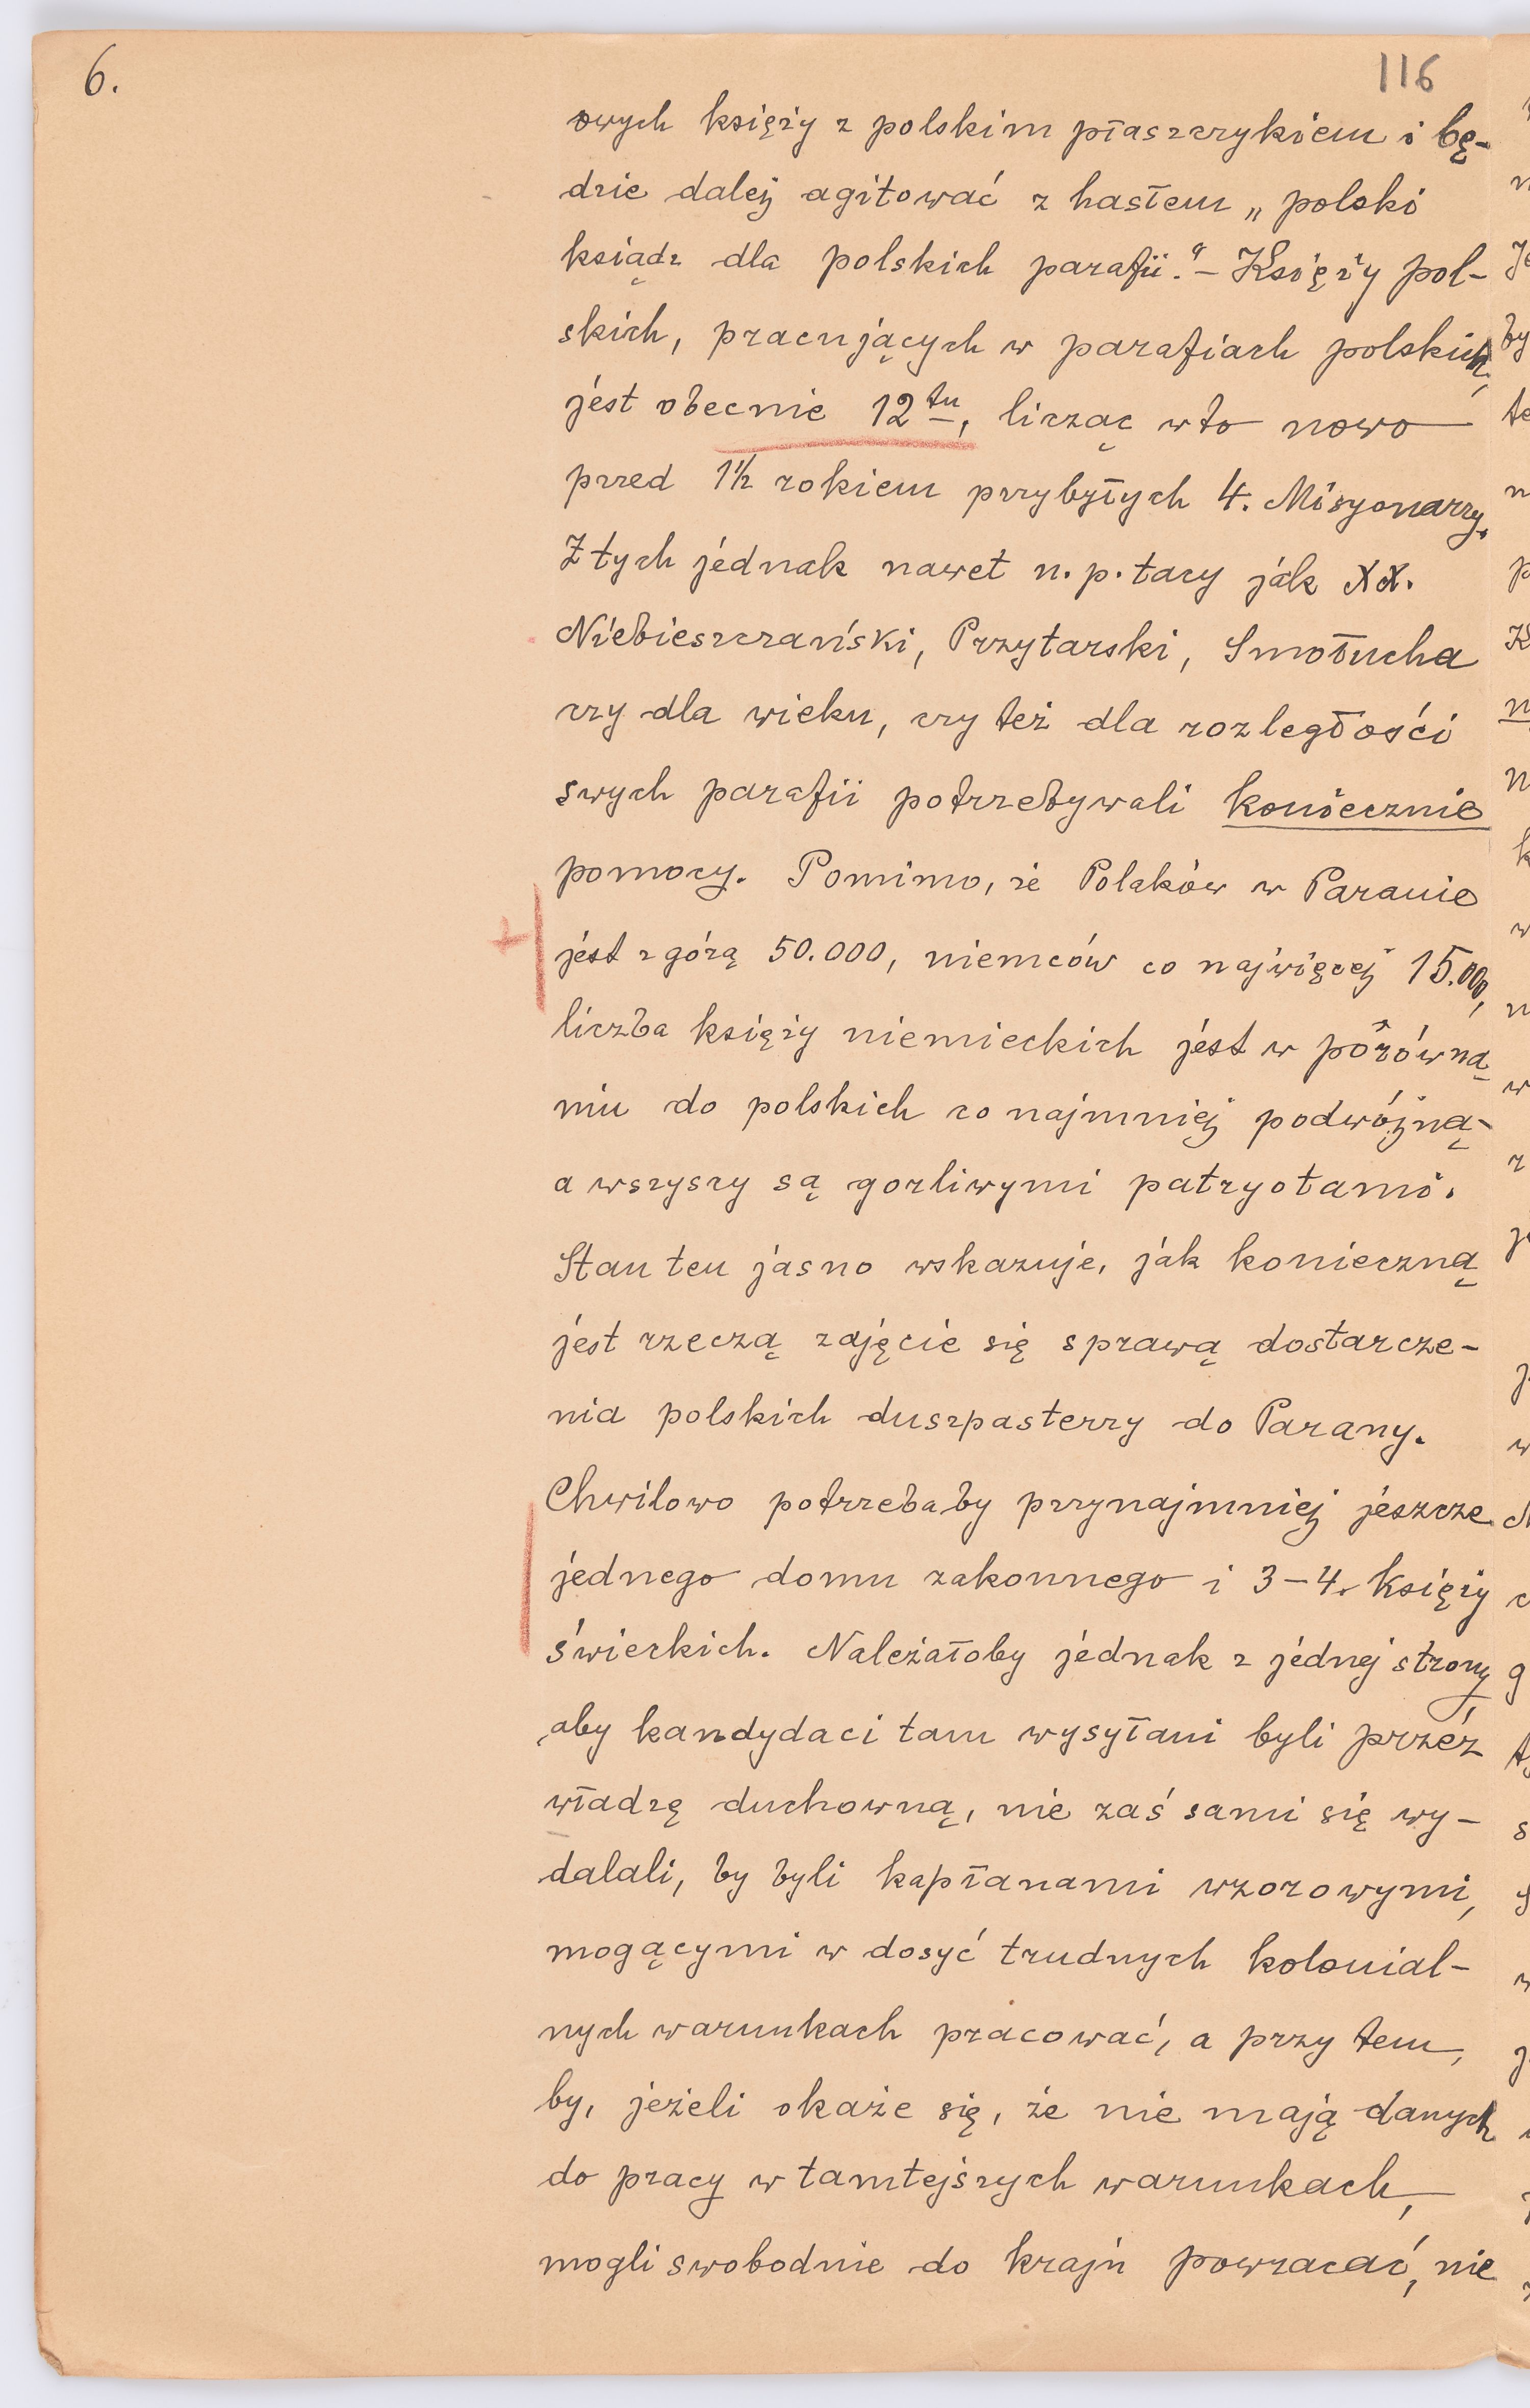 6.
116
owych księży z polskim płaszczykiem i bę-
dzie dalej agitować z hasłem „polski
ksiądz dla polskich parafii." – Księży pol-
skich, pracujących w parafiach polskich,
jest obecnie 12tu, licząc w to nowo
przed 1½ rokiem przybyłych 4. Misyonarzy.
Z tych jednak nawet n. p. tacy jak XX.
Niebieszczański, Przytarski, Smołucha
czy dla wieku, czy też dla rozległości
swych parafii potrzebywali koniecznie
pomocy. Pomimo, że Polaków w Paranie
jest z górą 50.000, niemców co najwięcej 15.000,
liczba księży niemieckich jest w porówna
niu do polskich co najmniej podwójną-
a wszyscy są gorliwymi patryotami.
Stan ten jasno wskazuje, jak konieczną
jest rzeczą zajęcie się sprawą dostarcze-
nia polskich duszpasterzy do Parany.
Chwilowo potrzebaby przynajmniej jeszcze
jednego domu zakonnego i 3–4. księży
świeckich. Należałoby jednak z jednej strony,
aby kandydaci tam wysyłani byli przez
władzę duchowną, nie zaś sami się wy-
dalali, by byli kapłanami wzorowymi,
mogącymi w dosyć trudnych kolonial-
nych warunkach pracować, a przy tem,
by, jeżeli okaże się, że nie mają danych
do pracy w tamtejszych warunkach,
mogli swobodnie do kraju powracać, nie